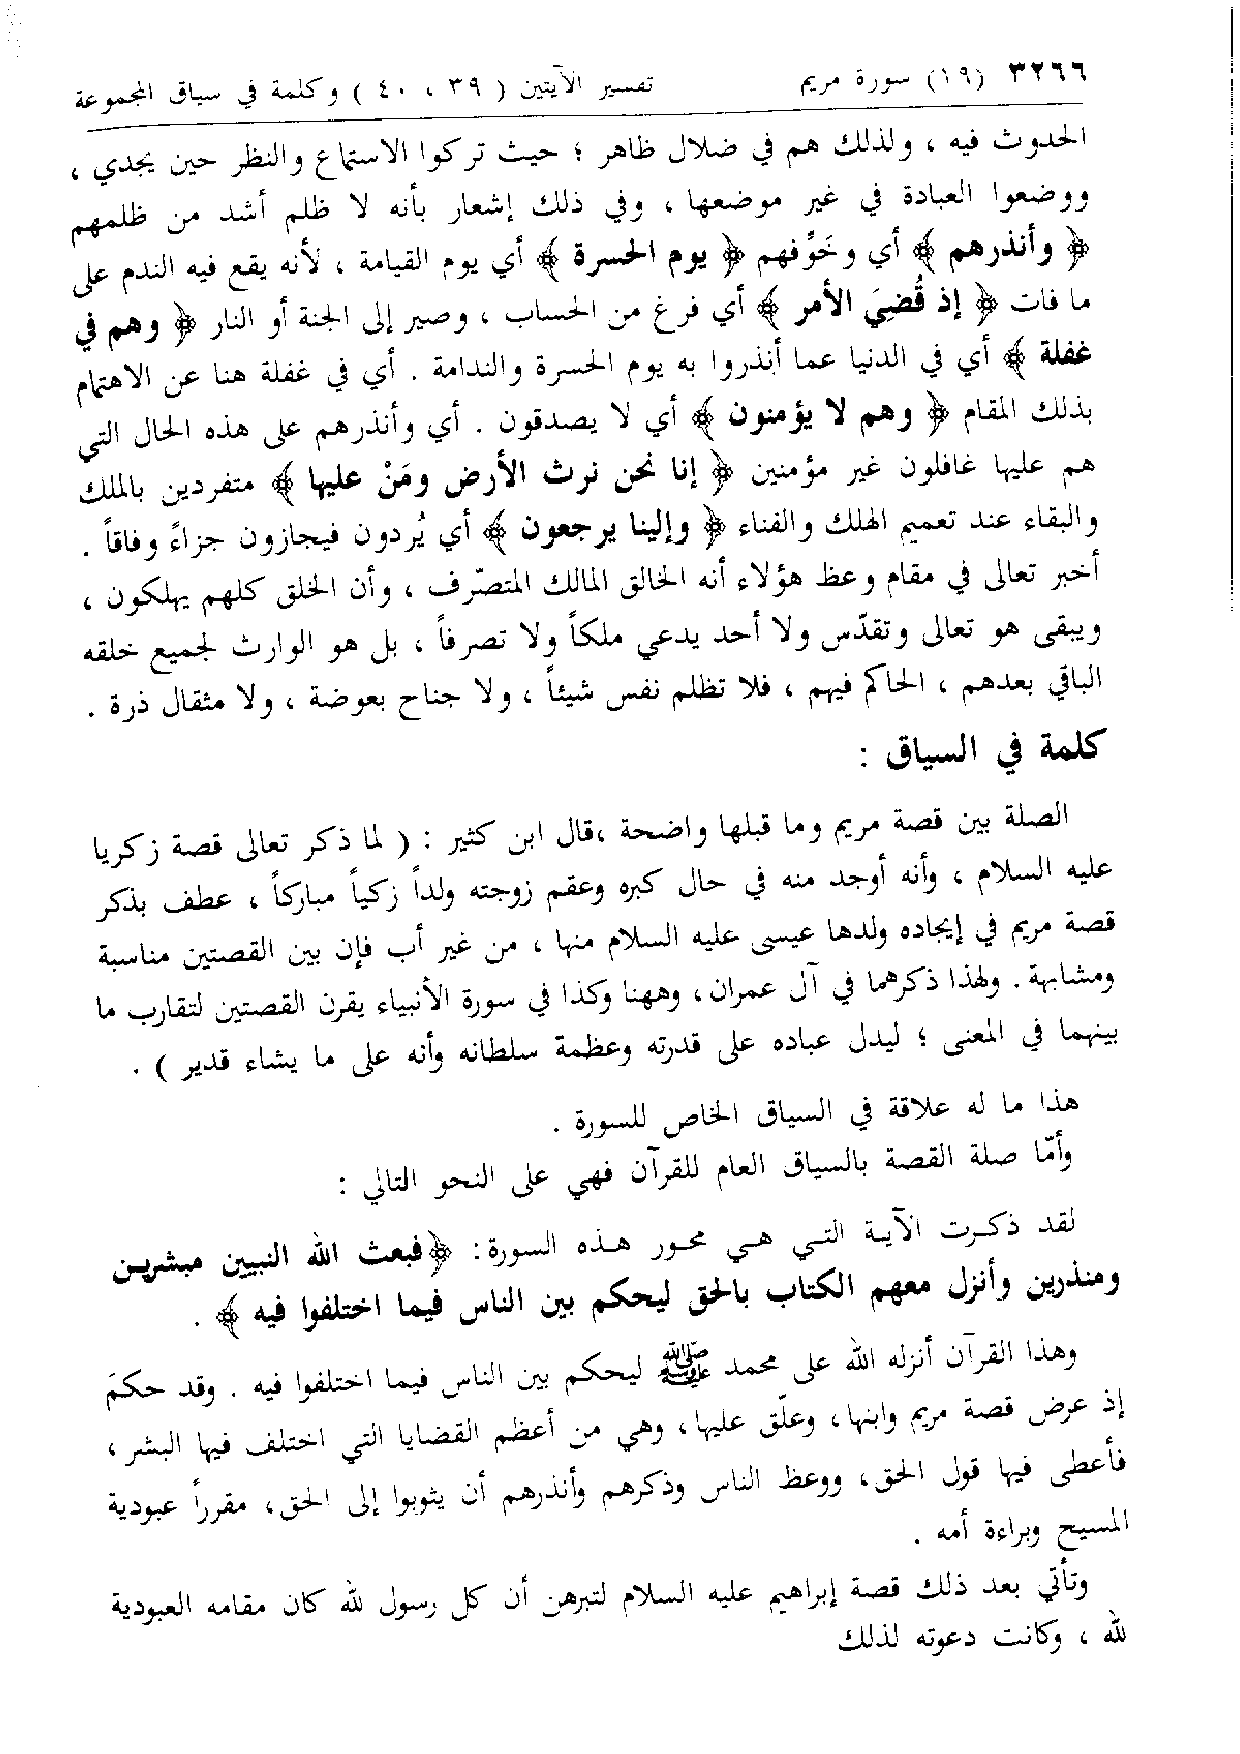 ٣٢٦٦ (١٩) سورة مريم تفسير الآيتين ( ٣٩ ، ٤٠ ) وكلمة في سياق المجموعة
الحدوث فيه ، ولذلك هم في ضلال ظاهر ؛ حيث تركوا الاستماع والنظر حين يجدي ،
ووضعوا العبادة في غير موضعها ، وفي ذلك إشعار بأنه لا ظلم أشد من ظلمهم
﴿ وأنذرهم ﴾ أي وخَوِّفهم ﴿ يوم الحسرة ﴾ أي يوم القيامة ، لأنه يقع فيه الندم على
ما فات ﴿ إذ قُضيَ الأمر ﴾ أي فرغ من الحساب ، وصير إلى الجنة أو النار ﴿ وهم في
غفلة ﴾ أي في الدنيا عما أنذروا به يوم الحسرة والندامة . أي في غفلة هنا عن الاهتمام
بذلك المقام ﴿ وهم لا يؤمنون ﴾ أي لا يصدقون . أي وأنذرهم على هذه الحال التي
هم عليها غافلون غير مؤمنين ﴿ إنا نحن نرث الأرض ومَنْ عليها ﴾ متفردين بالملك
والبقاء عند تعميم الهلك والفناء ﴿ وإلينا يرجعون ﴾ أي يُردون فيجازون جزاءً وفاقاً .
أخبر تعالى في مقام وعظ هؤلاء أنه الخالق المالك المتصّرف ، وأن الخلق كلهم يهلكون ،
ويبقى هو تعالى وتقدّس ولا أحد يدعي ملكاً ولا تصرفاً ، بل هو الوارث لجميع خلقه
الباقي بعدهم ، الحاكم فيهم ، فلا تظلم نفس شيئاً ، ولا جناح بعوضة ، ولا مثقال ذرة .
كلمة في السياق :
الصلة بين قصة مريم وما قبلها واضحة ،قال ابن كثير : ( لما ذكر تعالى قصة زكريا
عليه السلام ، وأنه أوجد منه في حال كبره وعقم زوجته ولداً زكياً مباركاً ، عطف بذكر
قصة مريم في إيجاده ولدها عيسى عليه السلام منها ، من غير أب فإن بين القصتين مناسبة
ومشابهة . ولهذا ذكرهما في آل عمران ، وههنا وكذا في سورة الأنبياء يقرن القصتين لتقارب ما
بينهما في المعنى ؛ ليدل عباده على قدرته وعظمة سلطانه وأنه على ما يشاء قدير ) .
هذا ما له علاقة في السياق الخاص للسورة .
وأمّا صلة القصة بالسياق العام للقرآن فهي على النحو التالي :
لقد ذكرت الآية التي هي محور هذه السورة: ﴿فبعث الله النبيين مبشرين
ومنذرين وأنزل معهم الكتاب بالحق ليحكم بين الناس فيما اختلفوا فيه ﴾ .
وهذا القرآن أنزله الله على محمد ﷺ ليحكم بين الناس فيما اختلفوا فيه . وقد حكمَ
إذ عرض قصة مريم وابنها ، وعلّق عليها ، وهي من أعظم القضايا التي اختلف فيها البشر ،
فأعطى فيها قول الحق ، ووعظ الناس وذكرهم وأنذرهم أن يثوبوا إلى الحق ، مقرراً عبودية
المسيح وبراءة أمه .
وتأتي بعد ذلك قصة إبراهيم عليه السلام لتبرهن أن كل رسول لله كان مقامه العبودية
لله ، وكانت دعوته لذلك